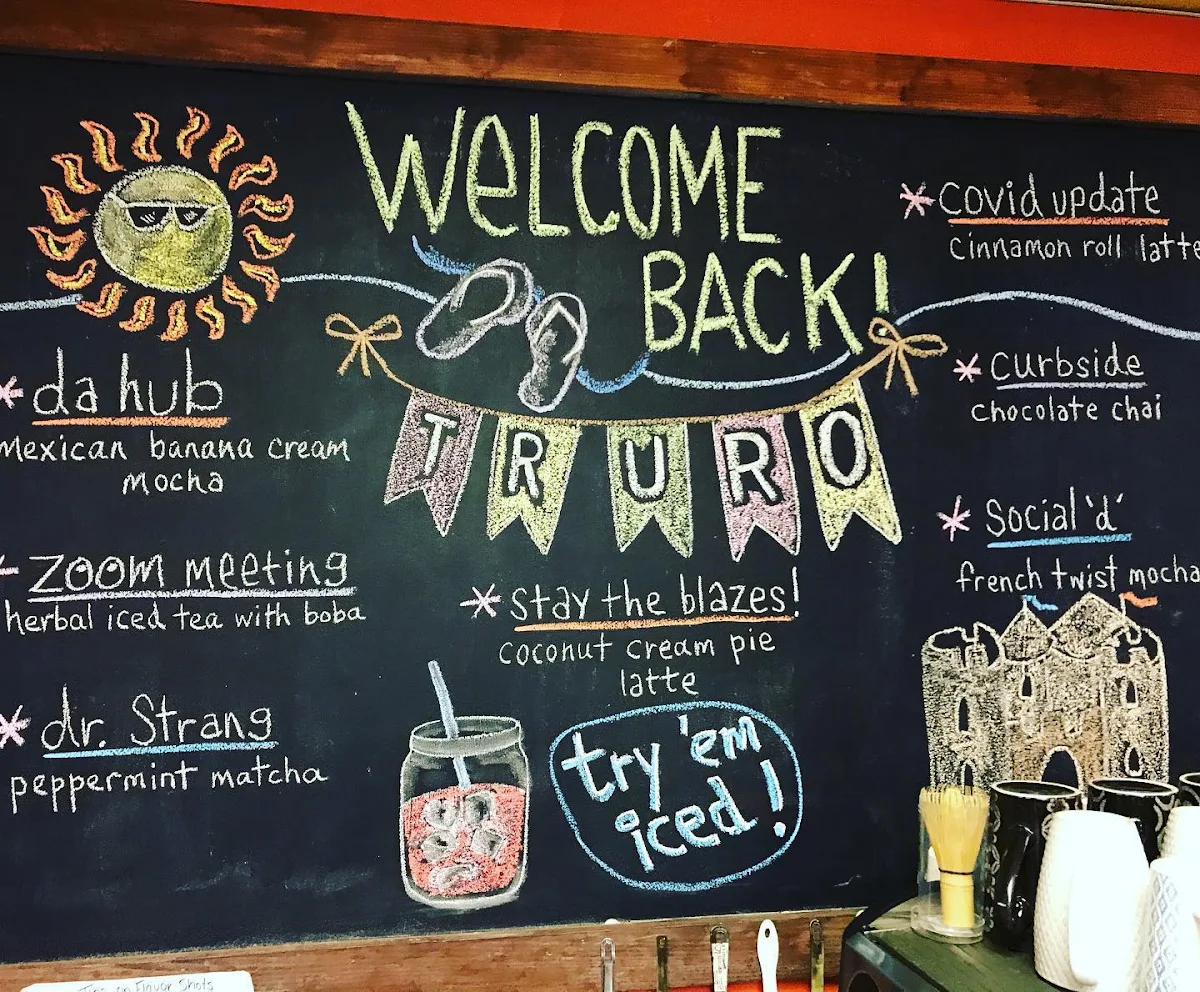 WeLCOME
BACK!
TRURO
* da hub
mexican banana cream
mocha
* zoom meeting
herbal iced tea with boba
* dr. Strang
peppermint matcha
* stay the blazes!
coconut cream pie
latte
try 'em
iced!
* covid update
cinnamon roll latte
* curbside
chocolate chai
* Social 'd'
french twist mocha
Tips on Flavor Shots